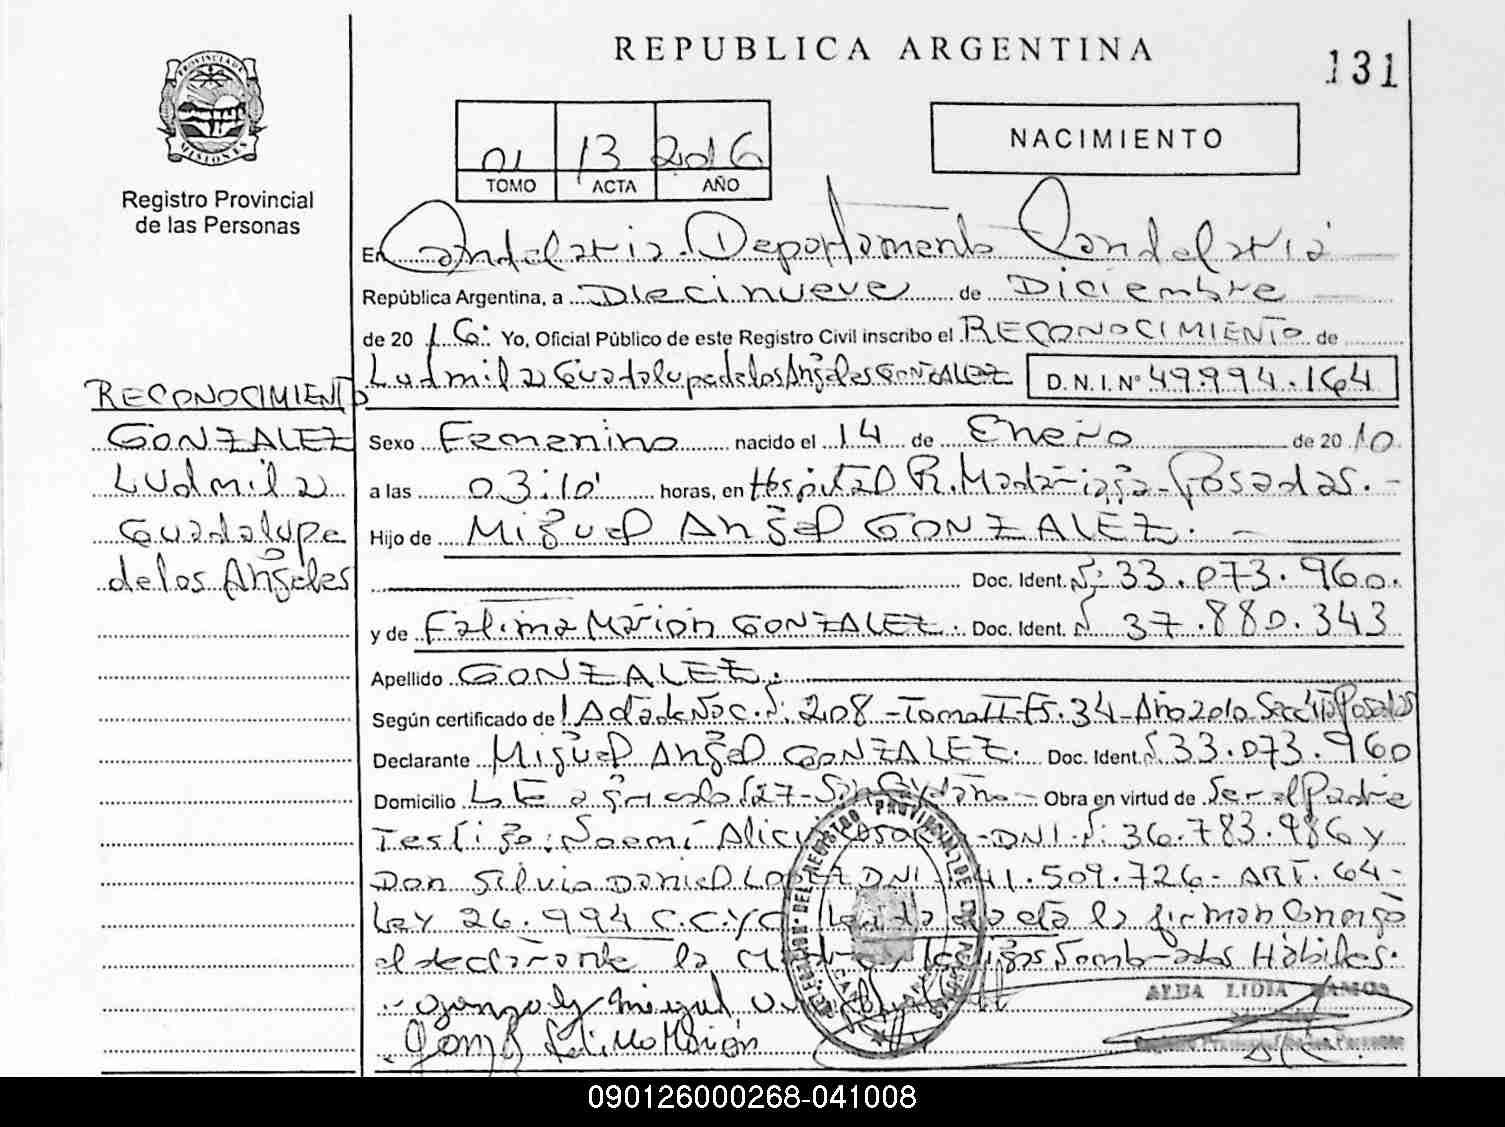 REPUBLICA ARGENTINA
131
PROVINCIA DE
MISIONES
Registro Provincial
de las Personas
01 13 2016
TOMO ACTA AÑO
NACIMIENTO
En Candelaria. Departamento Candelaria
República Argentina, a Diecinueve de Diciembre
de 20 16. Yo, Oficial Público de este Registro Civil inscribo el RECONOCIMIENTO de
Ludmila Guadalupe de los Angeles GONZALEZ D.N.I. N° 49.994.164
RECONOCIMIENTO
GONZALEZ
Ludmila
Guadalupe
de los Angeles
Sexo Femenino nacido el 14 de Enero de 20 10
a las 03:10' horas, en Hospital R. Madariaga - Posadas. -
Hijo de Miguel Angel GONZALEZ. -
Doc. Ident. N: 33.073.960.
y de Fatima Marion GONZALEZ. Doc. Ident. N 37.880.343
Apellido GONZALEZ.
Según certificado de Acta de Nac. N: 208 - Tomo II - Fs. 34 - Año 2010 Posadas
Declarante Miguel Angel GONZALEZ. Doc. Ident. N 33.073.960
Domicilio Obra en virtud de Ser el Padre
Testigo: Noemí DNI. N: 36.783.986 y
Don Silvio Daniel Lopez DNI 41.509.726 - ART. 64 -
Ley 26.994 C.C.yC. Leida el acta la firman Conmigo
el declarante la Madre y testigos Nombrados Hábiles.
Marion
ALBA LIDIA RAMOS
090126000268-041008